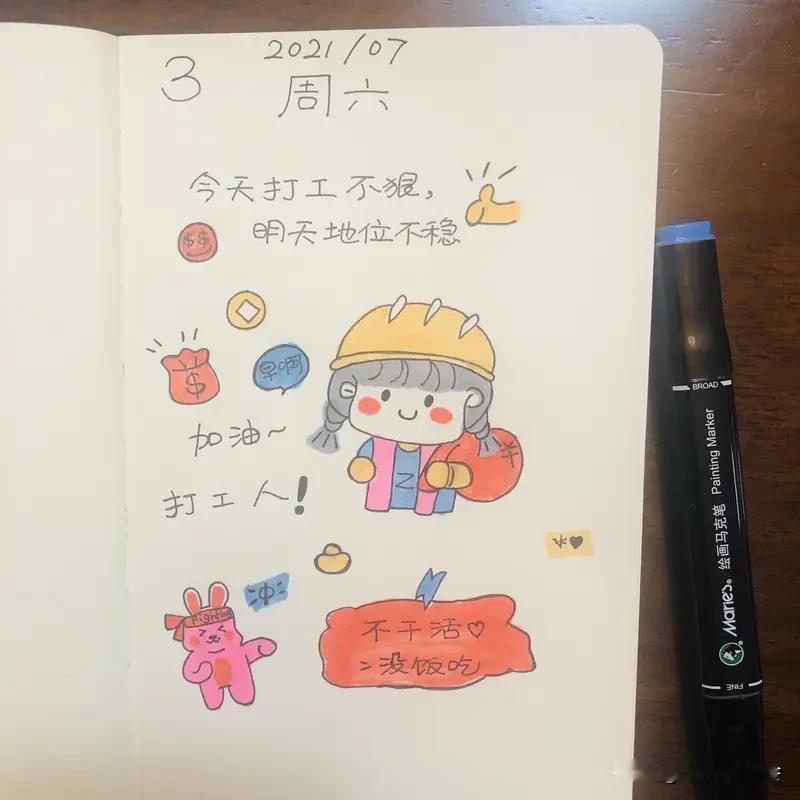 2021/07
3
周六
今天打工不狠,
明天地位不稳
$$
$
早啊
加油~
打工人!
Z
¥
冲
Fighting
不干活♡
=没饭吃
BROAD
Painting Marker
绘画马克笔
Maries®
FINE